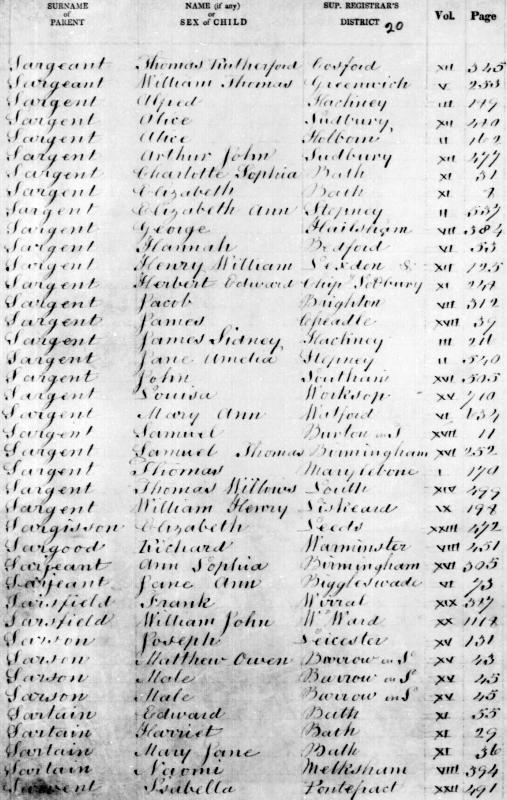 SURNAME of PARENT NAME (if any) or SEX of CHILD SUP. REGISTRAR'S DISTRICT 20 Vol. Page
Sargeant Thomas Rutherford Cosford XII 345
Sargeant William Thomas Greenwich V 253
Sargent Alfred Hackney III 149
Sargent Alice Sudbury XII 440
Sargent Alice Holborn II 162
Sargent Arthur John Sudbury XII 477
Sargent Charlotte Sophia Bath XI 31
Sargent Elizabeth Bath XI
Sargent Elizabeth Ann Stepney II 537
Sargent George Hailsham VII 384
Sargent Hannah Bedford VI 33
Sargent Henry William Lexden & XII 125
Sargent Herbert Edward Chipg Sodbury XI 247
Sargent Jacob Brighton VII 312
Sargent James Cheadle XVII 39
Sargent James Sidney Hackney III 211
Sargent Jane Amelia Stepney II 540
Sargent John Southam XVI 505
Sargent Louisa Worksop XV 710
Sargent Mary Ann Watford VI 634
Sargent Samuel Burton on T XVII 11
Sargent Samuel Thomas Birmingham XVI 252
Sargent Thomas Marylebone I 170
Sargent Thomas Willows Louth XIV 499
Sargent William Henry Liskeard IX 198
Sargisson Elizabeth Leeds XXIII 472
Sargood Richard Warminster VIII 451
Sarjeant Ann Sophia Birmingham XVI 305
Sarjeant Jane Ann Biggleswade VI 73
Sarsfield Frank Wirral XIX 317
Sarsfield William John W Ward XX
Sarson Joseph Leicester XV 131
Sarson Matthew Owen Barrow on S. XV 43
Sarson Male Barrow on S. XV 45
Sarson Male Barrow on S. XV 45
Sartain Edward Bath XI 55
Sartain Harriet Bath XI 29
Sartain Mary Jane Bath XI 36
Sartain Naomi Melksham VIII 394
Sarvent Isabella Pontefract XXII 491